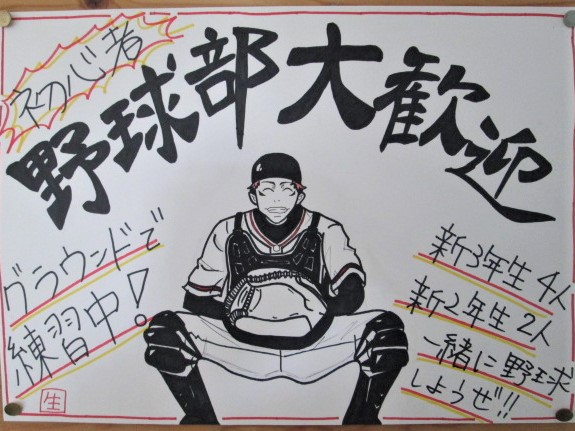 初心者
野球部大歓迎
グラウンドで
練習中!
新3年生 4人
新2年生 2人
一緒に野球
しようぜ!!
生